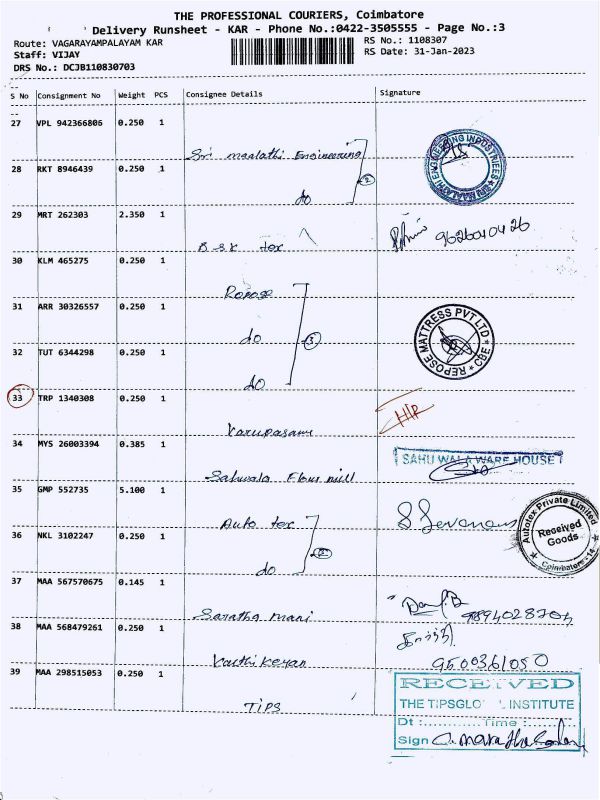 THE PROFESSIONAL COURIERS, Coimbatore
Delivery Runsheet - KAR - Phone No.:0422-3505555 - Page No.:3
Route: VAGARAYAMPALAYAM KAR
RS No.: 1108307
Staff: VIJAY
RS Date: 31-Jan-2023
DRS No.: DCJB110830703
S No Consignment No Weight PCS Consignee Details Signature
27 VPL 942366806 0.250 1
Sri maalathi Engineering
28 RKT 8946439 0.250 1
do
2
SRI MAALATHI ENGINEERING INDUSTRIEES
29 MRT 262303 2.350 1
B.S.K tex
9626040426
30 KLM 465275 0.250 1
Repose
31 ARR 30326557 0.250 1
do
3
REPOSE MATTRESS PVT LTD
CBE
32 TUT 6344298 0.250 1
do
33 TRP 1340308 0.250 1
Karupasamy
H/R
34 MYS 26003394 0.385 1
Sahuwala Flour mill
SAHUWALA WARE HOUSE
35 GMP 552735 5.100 1
Auto tex
36 NKL 3102247 0.250 1
do
2
Autotex Private Limited
Received
Goods
Coimbatore-14
37 MAA 567570675 0.145 1
Saratha mani
9894028704
38 MAA 568479261 0.250 1
Karthikeyan
9500361050
39 MAA 298515053 0.250 1
TIPS
RECEIVED
THE TIPSGLO L INSTITUTE
Dt :............Time :............
Sign